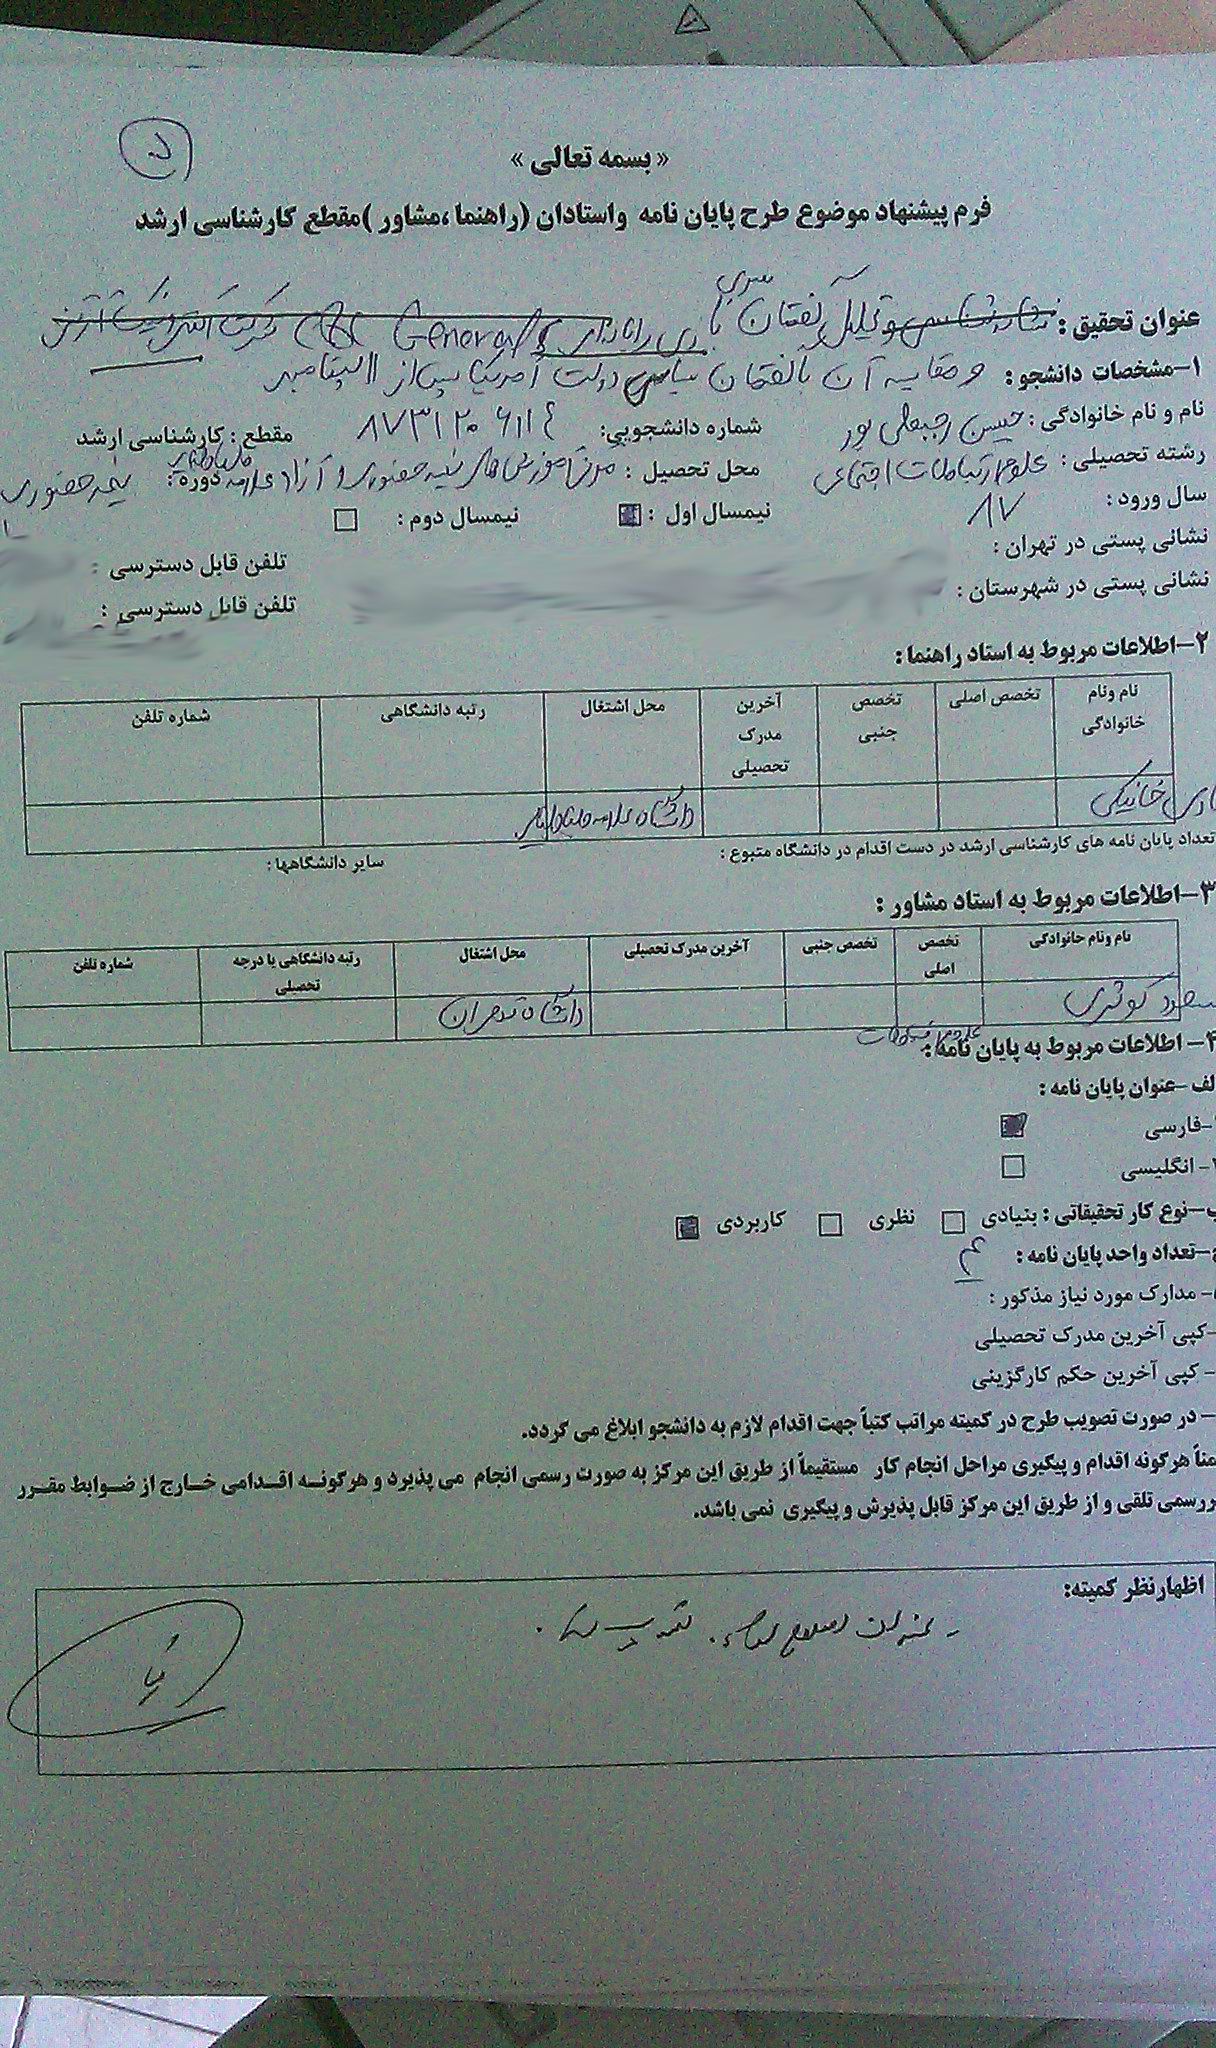 « بسمه تعالی »
فرم پیشنهاد موضوع طرح پایان نامه واستادان (راهنما ،مشاور )مقطع کارشناسی ارشد
عنوان تحقیق : نشانه‌شناسی و تحلیل گفتمان بازی رایانه‌ای Generals شرکت الکترونیک آرتز
و مقایسه آن با گفتمان سیاسی دولت آمریکا پس از ۱۱ سپتامبر
۱-مشخصات دانشجو :
نام و نام خانوادگی : حسین رجبعلی پور شماره دانشجویی: ۸۷۳۱۲۰۶۱۱۴ مقطع : کارشناسی ارشد
رشته تحصیلی : علوم ارتباطات اجتماعی محل تحصیل : مرکز آموزش های نیمه حضوری و آزاد علامه طباطبایی دوره : نیمه حضوری
سال ورود : ۸۷ نیمسال اول : نیمسال دوم :
نشانی پستی در تهران : تلفن قابل دسترسی :
نشانی پستی در شهرستان : تلفن قابل دسترسی :
۲-اطلاعات مربوط به استاد راهنما :
نام ونام خانوادگی تخصص اصلی تخصص جنبی آخرین مدرک تحصیلی محل اشتغال رتبه دانشگاهی شماره تلفن
خانیکی دانشگاه علامه طباطبایی
تعداد پایان نامه های کارشناسی ارشد در دست اقدام در دانشگاه متبوع : سایر دانشگاهها :
۳-اطلاعات مربوط به استاد مشاور :
نام ونام خانوادگی تخصص اصلی تخصص جنبی آخرین مدرک تحصیلی محل اشتغال رتبه دانشگاهی یا درجه تحصیلی شماره تلفن
کوثری دانشگاه تهران
علوم ارتباطات
۴- اطلاعات مربوط به پایان نامه :
لف -عنوان پایان نامه :
-فارسی
- انگلیسی
ب-نوع کار تحقیقاتی : بنیادی نظری کاربردی
ج-تعداد واحد پایان نامه : ۴
- مدارک مورد نیاز مذکور :
-کپی آخرین مدرک تحصیلی
- کپی آخرین حکم کارگزینی
- در صورت تصویب طرح در کمیته مراتب کتباً جهت اقدام لازم به دانشجو ابلاغ می گردد.
مناً هرگونه اقدام و پیگیری مراحل انجام کار مستقیماً از طریق این مرکز به صورت رسمی انجام می پذیرد و هرگونه اقدامی خارج از ضوابط مقرر
ررسمی تلقی و از طریق این مرکز قابل پذیرش و پیگیری نمی باشد.
اظهارنظر کمیته:
- عنوان اصلاح